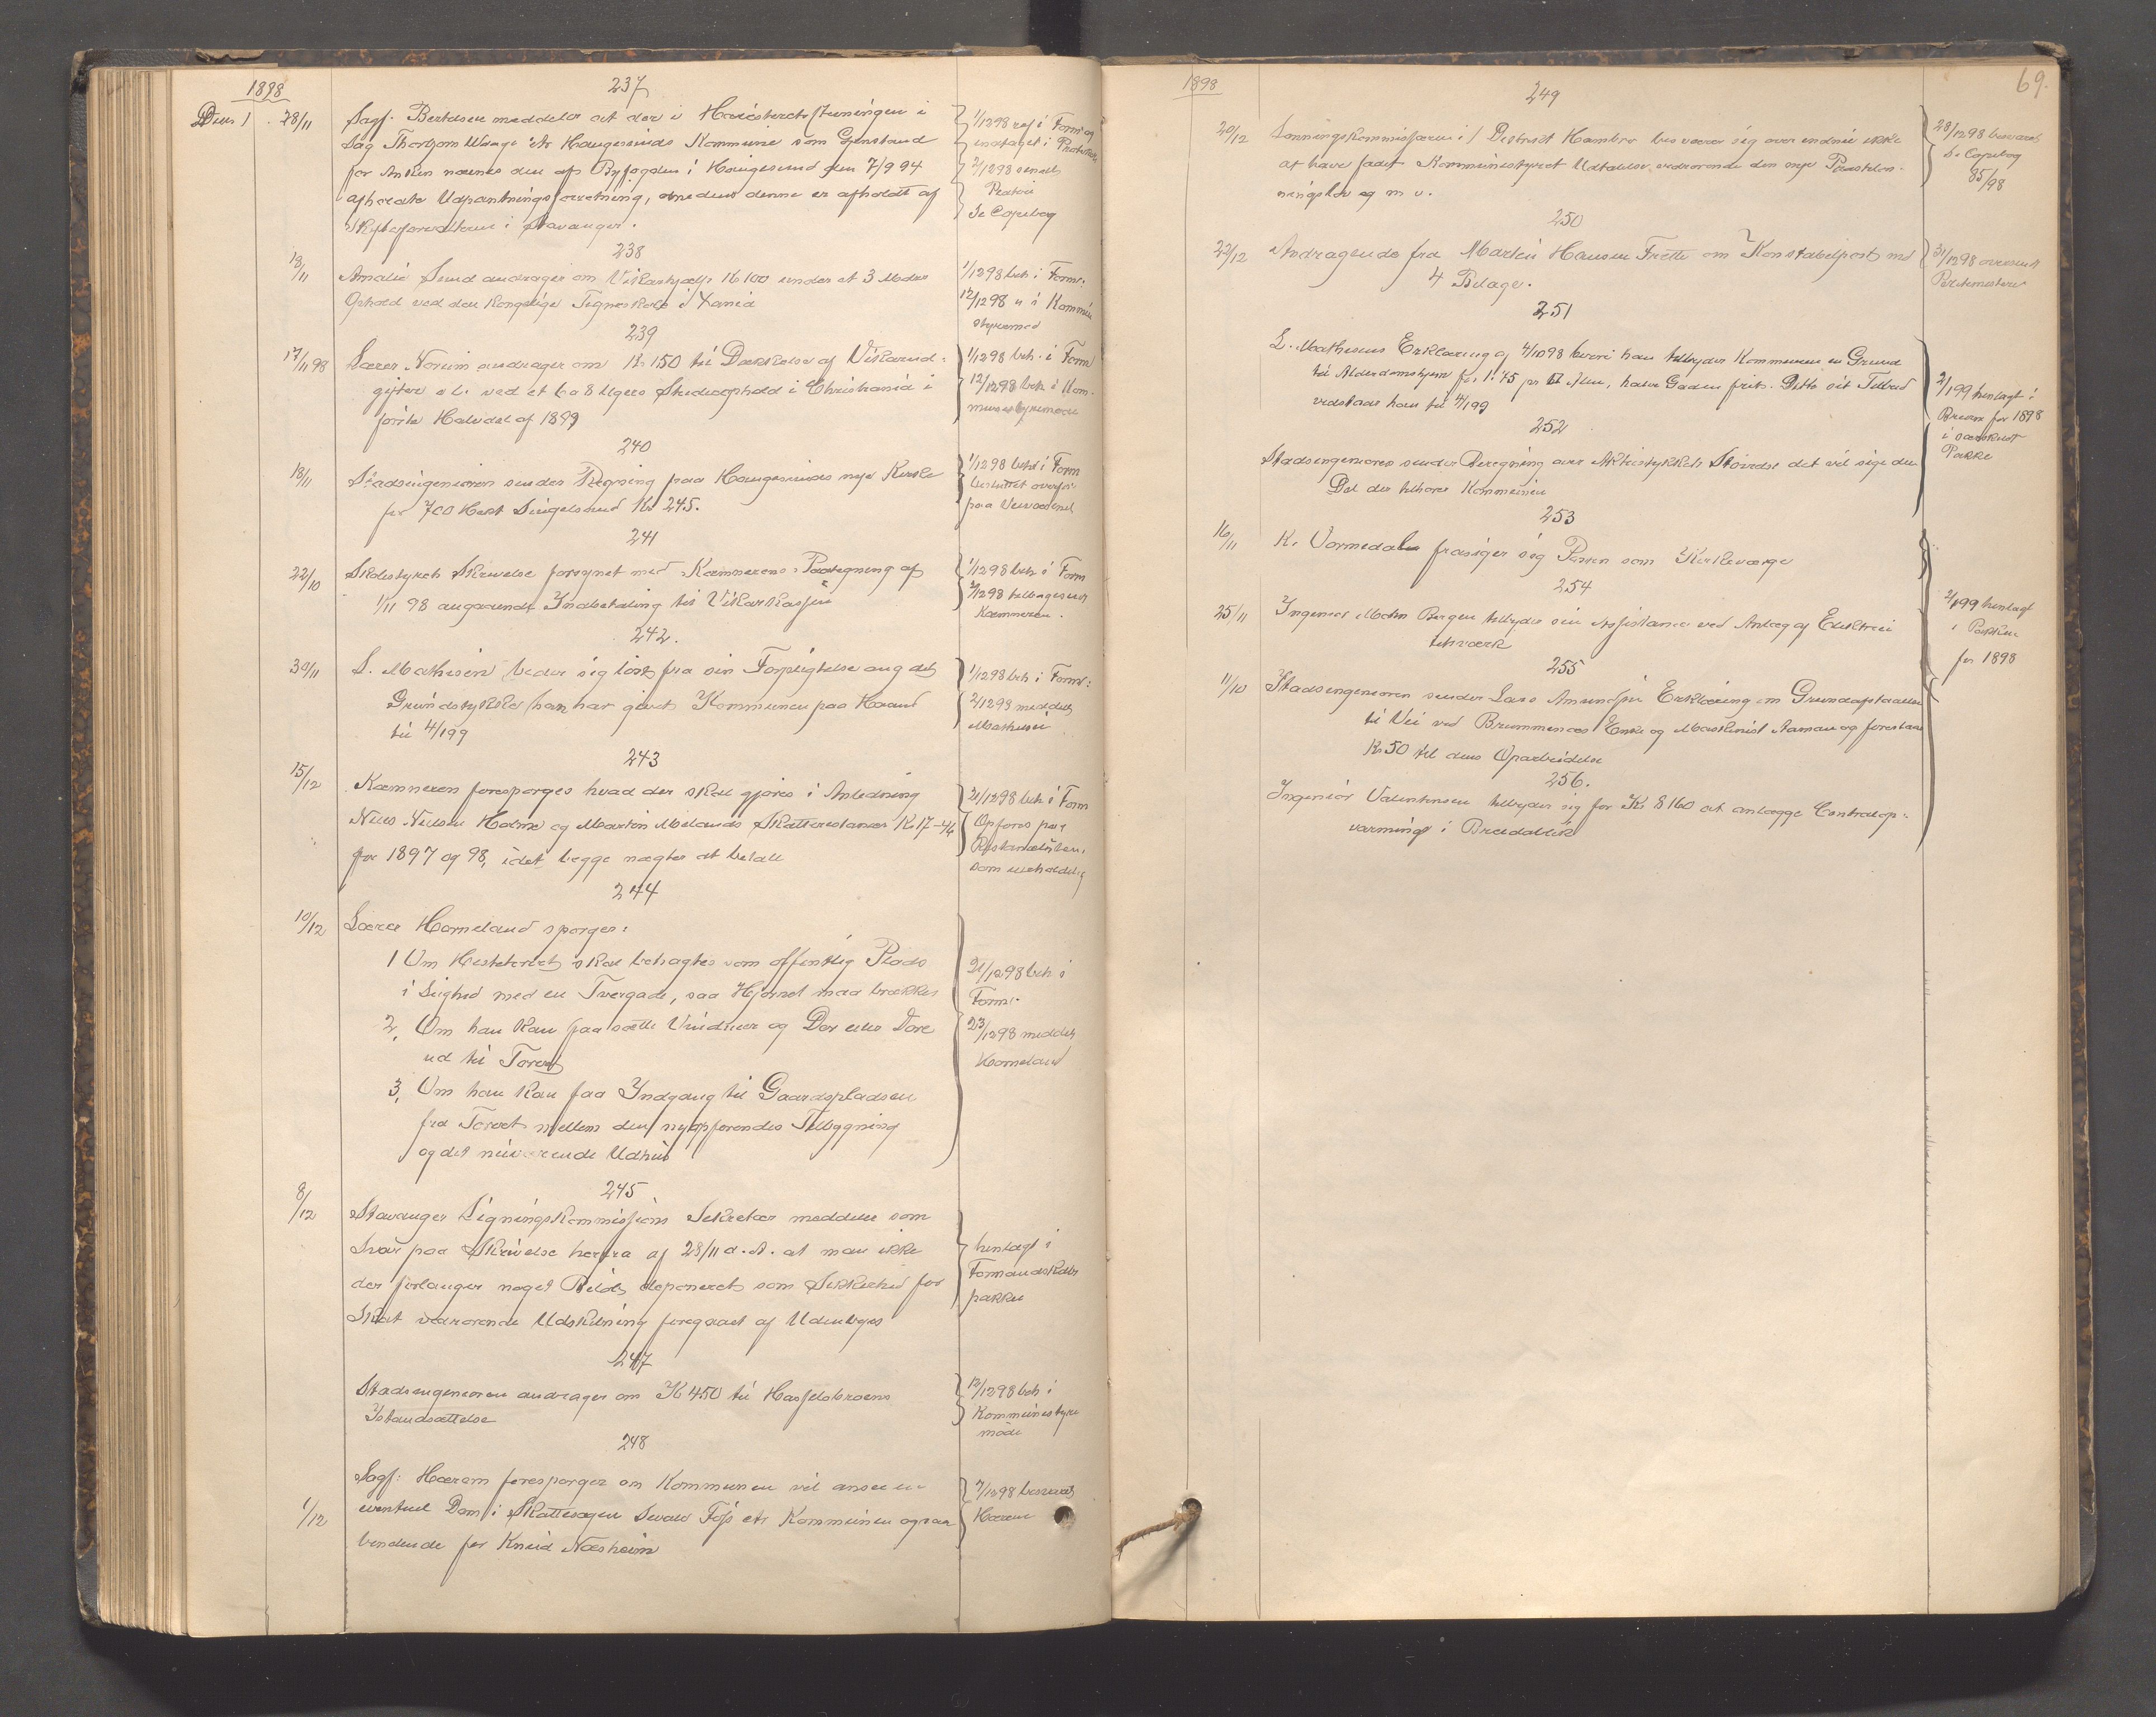 1898
237
28/11 Sagf. Bertelsen meddeler at der i Høiesteretsstevningen i
Sag Thorbjørn Waage ctr Haugesunds Kommune som Gjenstand
for Anken nævnes den af Byfogden i Haugesund den 7/9 94
afholdte Udpantningsforretning, medens denne er afholdt af
i Stavanger.
1/12 98 ref i Form og
indtaget i
2/12 98 sendt
Se Copibog
238
18/11 Amalie Sund andrager om Vikarhjælp Kr 100 under et 3 Mdrs
Ophold ved den kongelige Tegneskole i Xania
1/12 98 beh i Form:
12/12 98 " i Kommu
styremød
239
17/11 98 Lærer Norum andrager om Kr 150 til Dækkelse af Vikarud-
gifter o l. ved et 6 a 8 Ugers Studieophold i Christiania i
første Halvdel af 1899
1/12 98 beh. i Form
12/12 98 beh i Kom-
munestyremøde
240
18/11 Stadsingeniøren sender Regning paa Haugesunds nye Kirke
for 700 Hekt Singelsand Kr 245.
1/12 98 behl i Form
besluttet overført
paa Veivæsenet
241
22/10 Skolestyrets Skrivelse forsynet med Kæmnerens Paategning af
1/11 98 angaaende Indbetaling til Vikarkassen
1/12 98 beh i Form
2/12 98 tilbagesendt
Kæmneren.
242.
30/11 S. Mathisen beder sig løst fra sin Forpligtelse ang det
Grundstykke han har givet Kommunen paa Haand
til 4/1 99
1/12 98 beh i Form:
2/12 98 meddelt
Mathisen
243
15/12 Kæmneren forespørges hvad der skal gjøres i Anledning
Nils Nilsen Holme og Martin Melands Skatterestancer Kr 17-46
for 1897 og 98, idet begge nægter at betale
21/12 98 beh i Form
Opføres paa
Restancelisten
som uerholdelig
244
10/12 Lærer Horneland spørger:
1 Om Hestetorvet skal betragtes som offentlig Plads
i Lighed med en Tvergade, saa Hjørnet maa brækkes
2, Om han kan faa sætte Vinduer og Dør eller Døre
ud til Torvet
3, Om han kan faa Indgang til Gaardspladsen
fra Torvet mellem den nyopførendes Tilbygning
og det nuværende Udhus
21/12 98 beh i
Form.
23/12 98 meddelt
Horneland
245
8/12 Stavanger Ligningskommissions Sekretær meddeler som
Svar paa Skrivelse herfra af 28/11 d. A. at man ikke
der forlanger noget Beløb deponeret som Sikkerhed for
Skat vedrørende Udskibning foregaaet af Udenbyes
henlagt i
Formandskabs
pakke
247
Stadsingeniøren andrager om Kr 450 til Hasselsbroens
Istandsættelse
12/12 98 beh i
Kommunestyre
møde
248
1/12 Sagf: Hærem forespørger om Kommunen vil ansee en
eventuel Dom i Skattesagen Svale Fos ctr Kommunen ogsaa
bindende for Knud Næsheim
7/12 98 besvaret
Hærem
1898
69.
249
20/12 Lønningskommissæren i 1 Distrikt Hambro besværer sig over endnu ikke
at have faaet Kommunestyrets Udtalelse vedrørende den nye
og m v.
28/12 98 besvaret
Se Copibog
85/98
250
22/12 Andragende fra Martin Hansen Frette om Konstabelpost med
4 Bilage.
31/12 98 oversendt
Politimesteren
251
L. Mathisens Erklæring af 4/10 98 hvori han tilbyder Kommunen en Grund
til Alderdomshjem for 1.45 pr □ Alen, halve Gaden frit. Dette sit Tilbud
vedstaar han til 4/1 99
252
Stadsingeniøren sender Beregning over Stykkets Størrelse det vil sige den
Del der tilhører Kommunen
2/1 99 henlagt i
for 1898
i særskilt
Pakke
253
16/11 K. Vormedal frasiger sig Posten som Kirkeværge
254
25/11 Ingeniør Mohn Bergen tilbyder sin Assistance ved Anlæg af Elektrici
tetsværk
2/1 99 henlagt
i Pakken
for 1898
255
11/10 Stadsingeniøren sender Lars Amundsens Erklæring om Grundafstaaelse
til Vei ved Brummenæs Enke og Maskinist Aaman og foreslaar
Kr 50 til dens Oparbeidelse
256.
Ingeniør Valentinsen tilbyder sig for Kr 8160 at anlægge Centralop-
varming i Breidablik